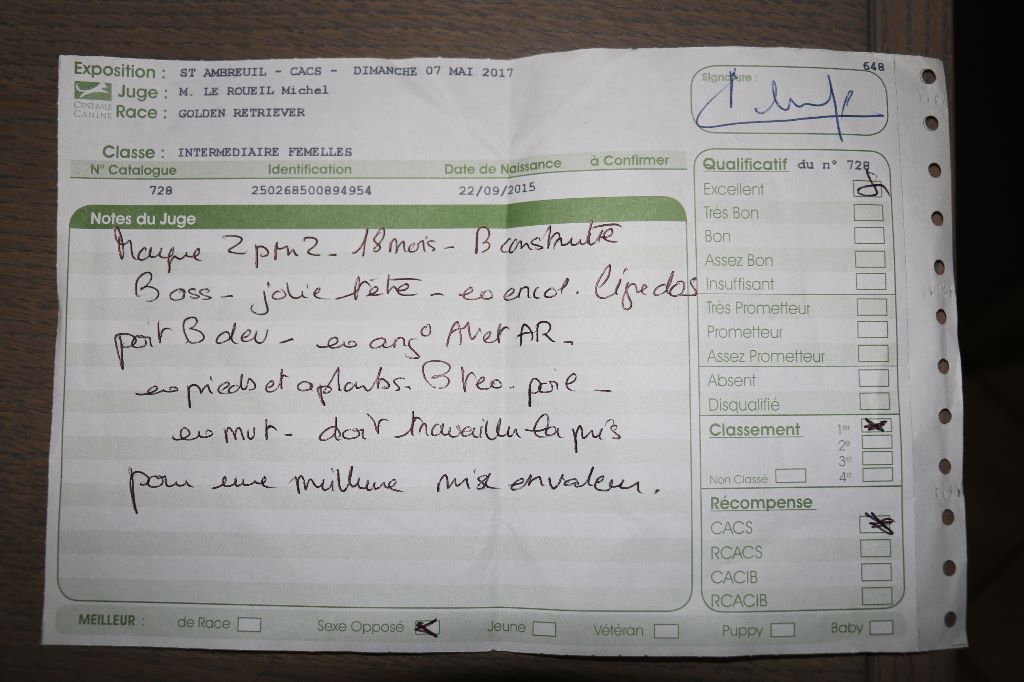 Exposition : ST AMBREUIL - CACS - DIMANCHE 07 MAI 2017
Juge : M. LE ROUEIL Michel
CENTRALE CANINE
Race : GOLDEN RETRIEVER
Classe : INTERMEDIAIRE FEMELLES
N° Catalogue Identification Date de Naissance à Confirmer
728 250268500894954 22/09/2015
Notes du Juge
Manque 2 pm2 - 18 mois - B construite
B oss - jolie tête - encol. ligne dos
port B deu - ang° AV et AR -
pieds et aplombs. B poil -
doit travailler
pour une meilleure mise en valeur.
648
Signature :
Qualificatif du n° 728
Excellent
Très Bon
Bon
Assez Bon
Insuffisant
Très Prometteur
Prometteur
Assez Prometteur
Absent
Disqualifié
Classement 1er
2e
3e
Non Classé 4e
Récompense
CACS
RCACS
CACIB
RCACIB
MEILLEUR : de Race Sexe Opposé Jeune Vétéran Puppy Baby